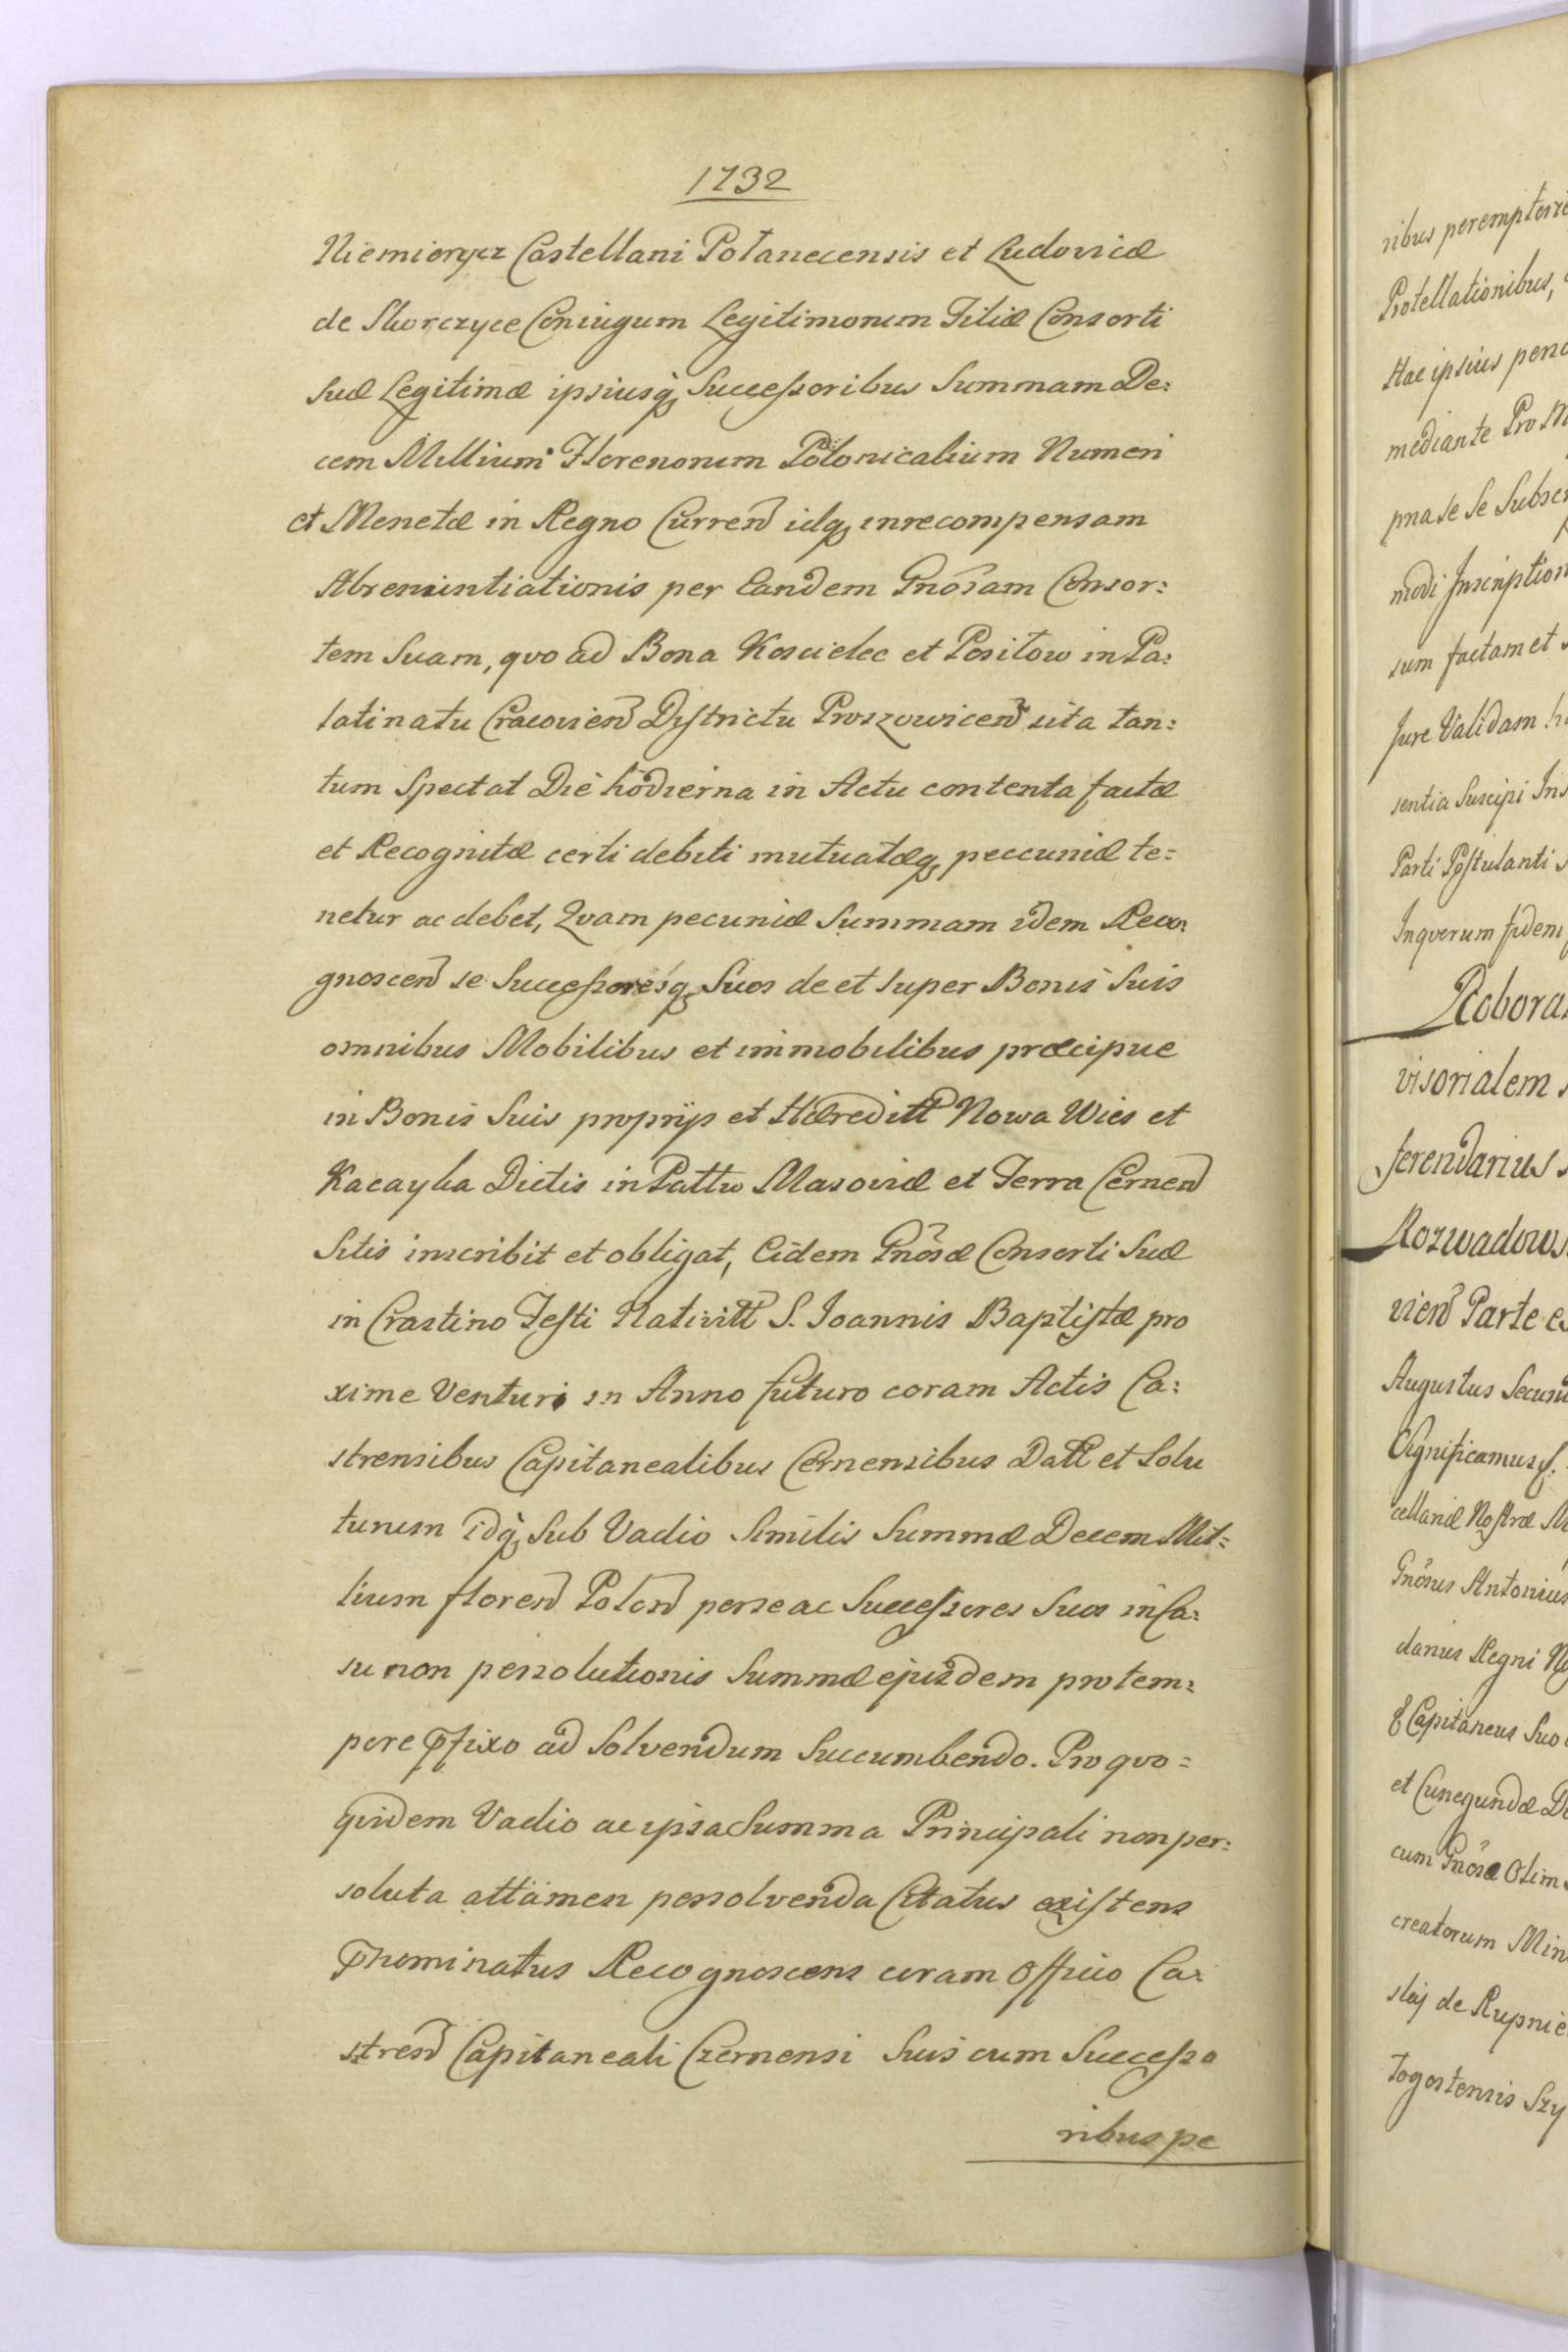 1732
Niemierycz Castellani Połanecensis et Ludovicæ
de Skorczyce Coniugum Legitimorum Filiæ Consorti
suæ Legitimæ ipsiusq; Successoribus Summam De:
cem Millium Florenorum Polonicalium Numeri
et Monetæ in Regno Curren̄ idq; in recompensam
Abrenuntiationis per Eandem Gnōsam Consor:
tem Suam, qvo ad Bona Koscielec et Positow in Pa:
latinatu Cracovien̄ Districtu Proszovicen̄ sita tan:
tum Spectat Die hodierna in Actu contenta factæ
et Recognitæ certi debiti mutuatæq; peccuniæ te=
netur ac debet, Qvam pecuniæ Summam idem Reco:
gnoscen̄ se Successoresq; Suos de et super Bonis Suis
omnibus Mobilibus et immobilibus præcipue
in Bonis Suis proprijs et Hæreditt Nowa Wies et
Kacayka Dictis in Pattu Masoviæ et Terra Cernen̄
Sitis inscribit et obligat, Eidem Gnōsæ Consorti Suæ
in Crastino Festi Nativitt S. Joannis Baptistæ pro
xime Venturi in Anno futuro coram Actis Ca:
strensibus Capitanealibus Cernensibus Datt et Solu
turum idq; Sub Vadio Similis Summæ Decem Mil=
lium floren̄ Polon̄ per se ac Successores Suos in Ca:
su non persolutionis Summæ ejusdem pro tem:
pore p̄fixo ad Solvendum Succumbendo. Pro qvo=
qvidem Vadio ac ipsa Summa Principali non per:
soluta attamen persolvenda Citatus existens
P̄nominatus Recognoscens coram Officio Ca:
stren̄ Capitaneali Czernensi Suis cum Successo
ribus pe
ribus peremptorie
Protellationibus,
Hac ipsius
mediante Pro
se Subscr
modi Inscription
sum factam et
Jure Validam
sentia Suscipi
Parti Postulanti
Inqverum fidem
Robora
visorialem
ferendarius
Rozwadows
vien̄ Parte
Augustus Secund
Significamus
cellariæ Nostræ
Gnōsus Antonius
darius Regni
& Capitaneus Suo
et Cunegundæ
cum Gnōsa Olim
creatorum Min
de Rupnie